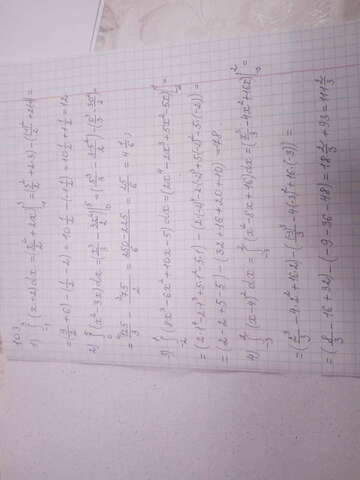 103
1) ∫₋₁³ (x+2)dx = (x²/2 + 2x)|₋₁³ = (3²/2 + 2·3) - ((-1)²/2 + 2·(-1)) =
= 9/2 + 6) - (1/2 - 2) = 10 1/2 - (-1 1/2) = 10 1/2 + 1 1/2 = 12
2) ∫₀⁵ (x² - 3x)dx = (x³/3 - 3x²/2)|₀⁵ = (5³/3 - 3·5²/2) - (0³/3 - 3·0²/2)
= 125/3 - 75/2 = 250-225/6 = 25/6 = 4 1/6;
3) ∫₋₂¹ (8x³ - 6x² + 10x - 5)dx = (2x⁴ - 2x³ + 5x² - 5x)|₋₂¹ =
= (2·1⁴ - 2·1³ + 5·1² - 5·1) - (2·(-2)⁴ - 2·(-2)³ + 5(-2)² - 5·(-2)) =
= (2 - 2 + 5 - 5) - (32 + 16 + 20 + 10) = -78.
4) ∫₋₃² (x-4)²dx = ∫₋₃² (x² - 8x + 16)dx = (x³/3 - 4x² + 16x)|₋₃² =
= (2³/3 - 4·2² + 16·2) - ((-3)³/3 - 4(-3)² + 16·(-3)) =
= (8/3 - 16 + 32) - (-9 - 36 - 48) = 18 2/3 + 93 = 111 2/3